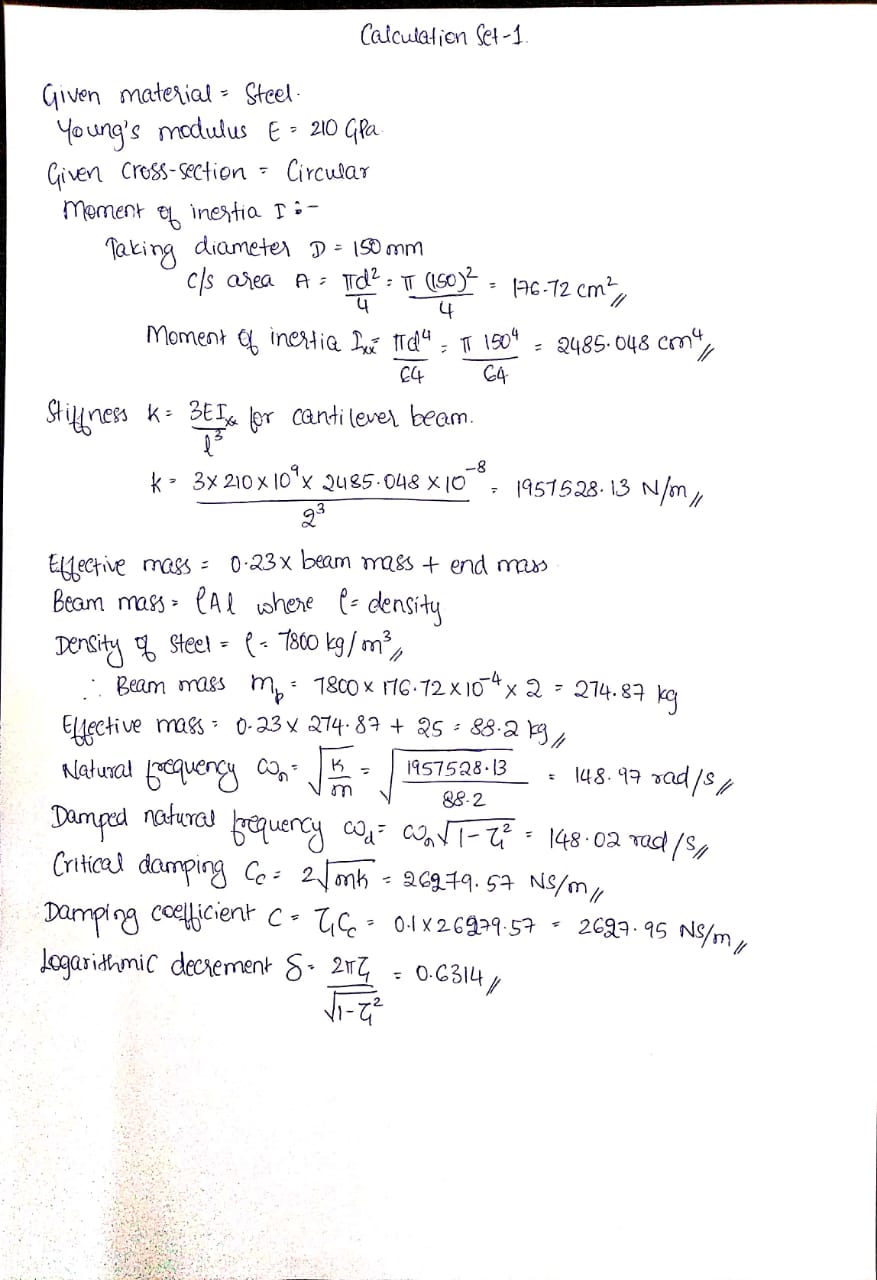 Calculation Set-1.
Given material = Steel.
Young's modulus E = 210 GPa
Given cross-section = Circular
Moment of inertia I :-
Taking diameter D = 150 mm
c/s area A = πd²/4 = π(150)²/4 = 176.72 cm²//
Moment of inertia Ixx = πd⁴/64 = π 150⁴/64 = 2485.048 cm⁴//
Stiffness k = 3EIxx/l³ for cantilever beam.
k = 3×210×10⁹×2485.048×10⁻⁸/2³ = 1957528.13 N/m//
Effective mass = 0.23× beam mass + end mass
Beam mass = ρAl where ρ = density
Density of steel = ρ = 7800 kg/m³//
∴ Beam mass mb = 7800×176.72×10⁻⁴×2 = 274.87 kg
Effective mass = 0.23×274.87 + 25 = 88.2 kg//
Natural frequency ωn = √(k/m) = √(1957528.13/88.2) = 148.97 rad/s//
Damped natural frequency ωd = ωn√(1-ζ²) = 148.02 rad/s//
Critical damping Cc = 2√mk = 26279.57 NS/m//
Damping coefficient C = ζCc = 0.1×26279.57 = 2627.95 NS/m//
Logarithmic decrement δ = 2πζ/√(1-ζ²) = 0.6314//